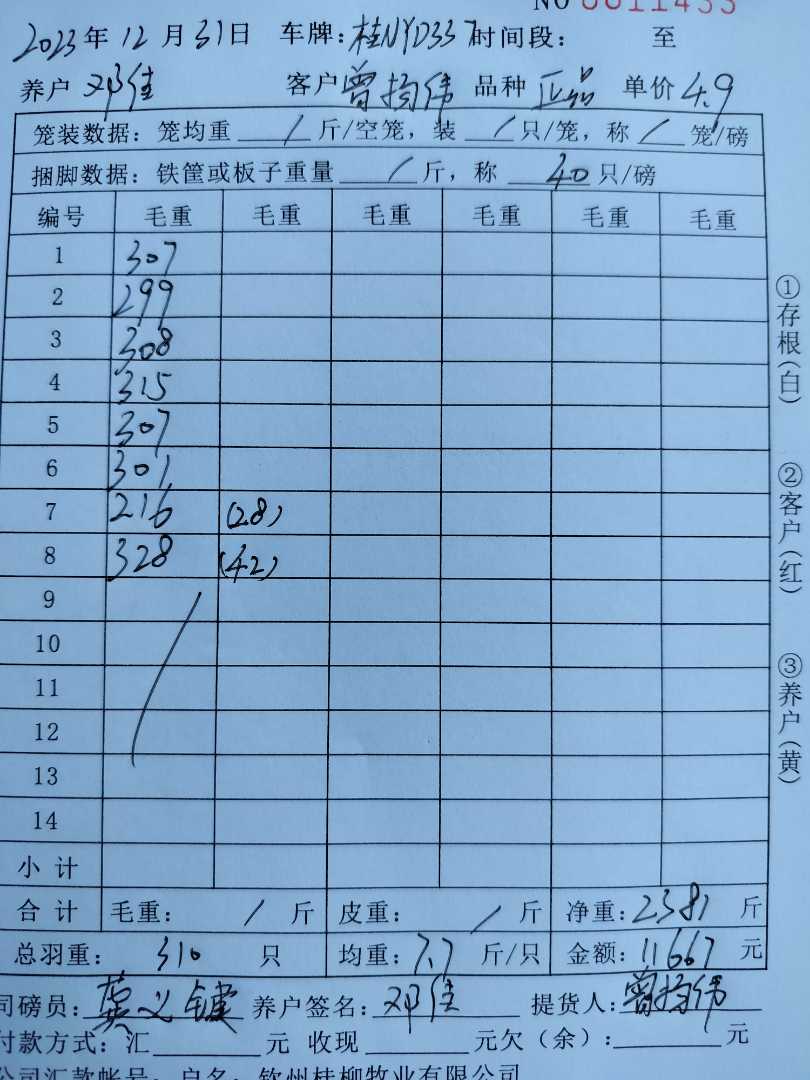 NO 0011433
2023年12月31日 车牌:桂NYD337 时间段: 至
养户 邓佳 客户 曾扬伟 品种 正品 单价 4.9
笼装数据:笼均重 / 斤/空笼,装 / 只/笼,称 / 笼/磅
捆脚数据:铁筐或板子重量 / 斤,称 40 只/磅
编号 毛重 毛重 毛重 毛重 毛重 毛重
1 307
2 299
3 308
4 315
5 307
6 301
7 216 (28)
8 328 (42)
9
10
11
12
13
14
小计
合计 毛重: / 斤 皮重: / 斤 净重:2381 斤
总羽重: 310 只 均重:7.7 斤/只 金额:11667 元
司磅员: 龚义 养户签名:邓佳 提货人:曾扬伟
付款方式:汇 元 收现 元欠(余): 元
公司汇款帐号:户名:钦州桂柳牧业有限公司
①存根(白)
②客户(红)
③养户(黄)